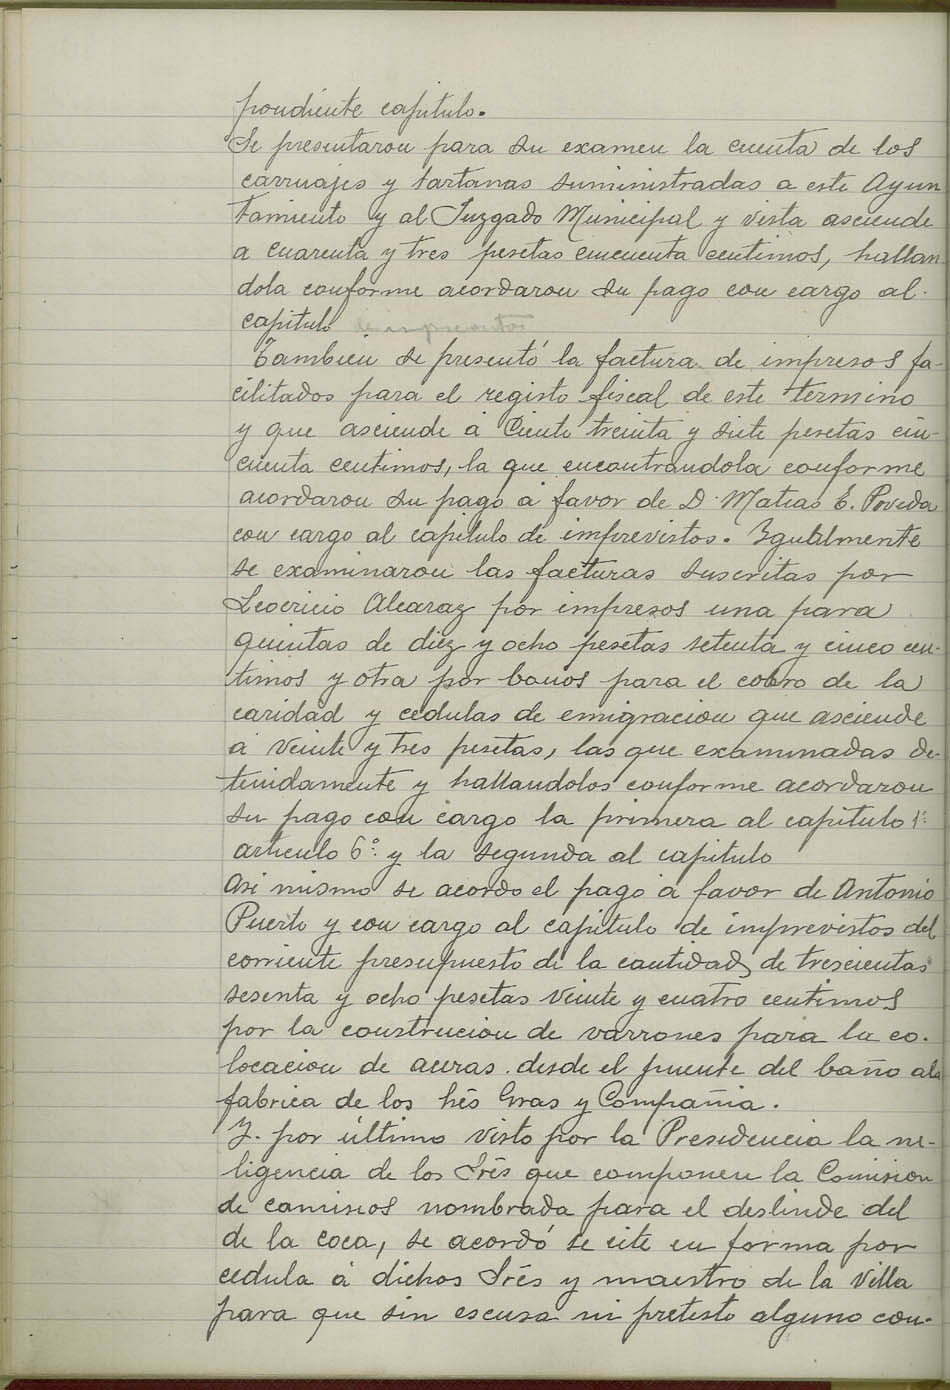 pondiente capitulo.
Se presentarou para su examen la cuenta de los
carruajes y tartanas suministradas a este Ayun
tamiento y al Juzgado Municipal y vista asciende
a cuarenta y tres pesetas cincuenta centimos, hallan
dola conforme acordarou su pago con cargo al
capitulo de imprevistos
Tambien se presentó la factura de impresos fa-
cilitados para el registo fiscal de este termino
y que asciende á Ciento treinta y siete pesetas cin-
cuenta centimos, la que encontrandola conforme
acordarou su pago á favor de D. Matias E. Poveda
con cargo al capitulo de imprevistos. Igualmente
se examinarou las facturas suscritas por
Leoericio Alcaraz por impresos una para
quintas de diez y ocho pesetas setenta y cinco cen-
timos y otra por bonos para el cobro de la
caridad y cedulas de emigracion que asciende
á veinte y tres pesetas, las que examinadas de-
tenidamente y hallandolos conforme acordarou
su pago con cargo la primera al capitulo 1º
articulo 6º y la segunda al capitulo
Asi mismo se acordo el pago á favor de Antonio
Puerto y con cargo al capitulo de imprevistos del
corriente presupuesto de la cantidad de trescientas
sesenta y ocho pesetas veinte y cuatro centimos
por la construcion de varrones para la co-
locacion de aceras desde el puente del baño ala
fabrica de los hés Gras y Compañia.
Y. por último visto por la Presidencia la ne-
ligencia de los Srēs que componen la Comision
de caminos nombrada para el deslinde del
de la coca, se acordó se cite en forma por
cedula á dichos Srēs y maestro de la Villa
para que sin escusa ni pretesto alguno con-